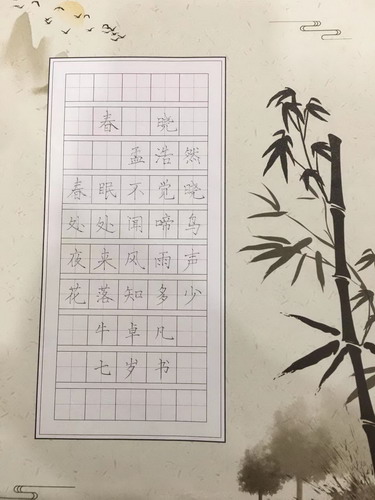 春晓
孟浩然
春眠不觉晓
处处闻啼鸟
夜来风雨声
花落知多少
牛卓凡
七岁书